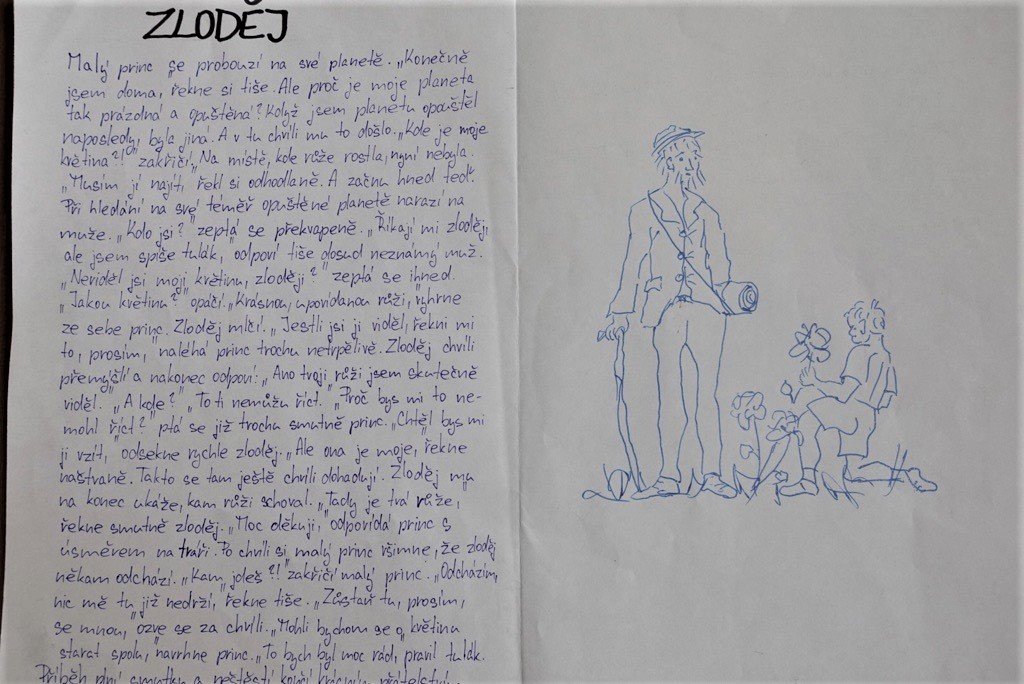 ZLODĚJ
Malý princ se probouzí na své planetě. „Konečně
jsem doma, řekne si tiše. Ale proč je moje planeta
tak prázdná a opuštěná? Když jsem planetu opouštěl
naposledy, byla jiná. A v tu chvíli mu to došlo. „Kde je moje
květina?!" zakřičí. Na místě, kde růže rostla, nyní nebyla.
„Musím ji najít, řekl si odhodlaně. A začnu hned teď."
Při hledání na své téměř opuštěné planetě narazí na
muže. „Kdo jsi?" zeptá se překvapeně. „Říkají mi zloděj,
ale jsem spíše tulák, odpoví tiše dosud neznámý muž.
„Neviděl jsi moji květinu, zloději?" zeptá se ihned.
„Jakou květinu?" opáčí. „Krásnou, upovídanou růži, vyhrne
ze sebe princ. Zloděj mlčí. „Jestli jsi ji viděl, řekni mi
to, prosím," naléhá princ trochu netrpělivě. Zloděj chvíli
přemýšlí a nakonec odpoví: „Ano tvoji růži jsem skutečně
viděl. „A kde?" „To ti nemůžu říct. „Proč bys mi to ne-
mohl říct?" ptá se již trochu smutně princ. „Chtěl bys mi
ji vzít, odsekne rychle zloděj. „Ale ona je moje, řekne
naštvaně. Takto se tam ještě chvíli dohadují. Zloděj mu
na konec ukáže, kam růži schoval. „Tady je tvá růže,
řekne smutně zloděj. „Moc děkuji," odpovídá princ s
úsměvem na tváři. Po chvíli si malý princ všimne, že zloděj
někam odchází. „Kam jdeš?!" zakřičí malý princ. „Odcházím,
nic mě tu již nedrží, řekne tiše. „Zůstaň tu, prosím,
se mnou," ozve se za chvíli. „Mohli bychom se o květinu
starat spolu," navrhne princ. „To bych byl moc rád, pravil tulák.
Příběh plný smutku a neštěstí končí krásným přátelstvím.